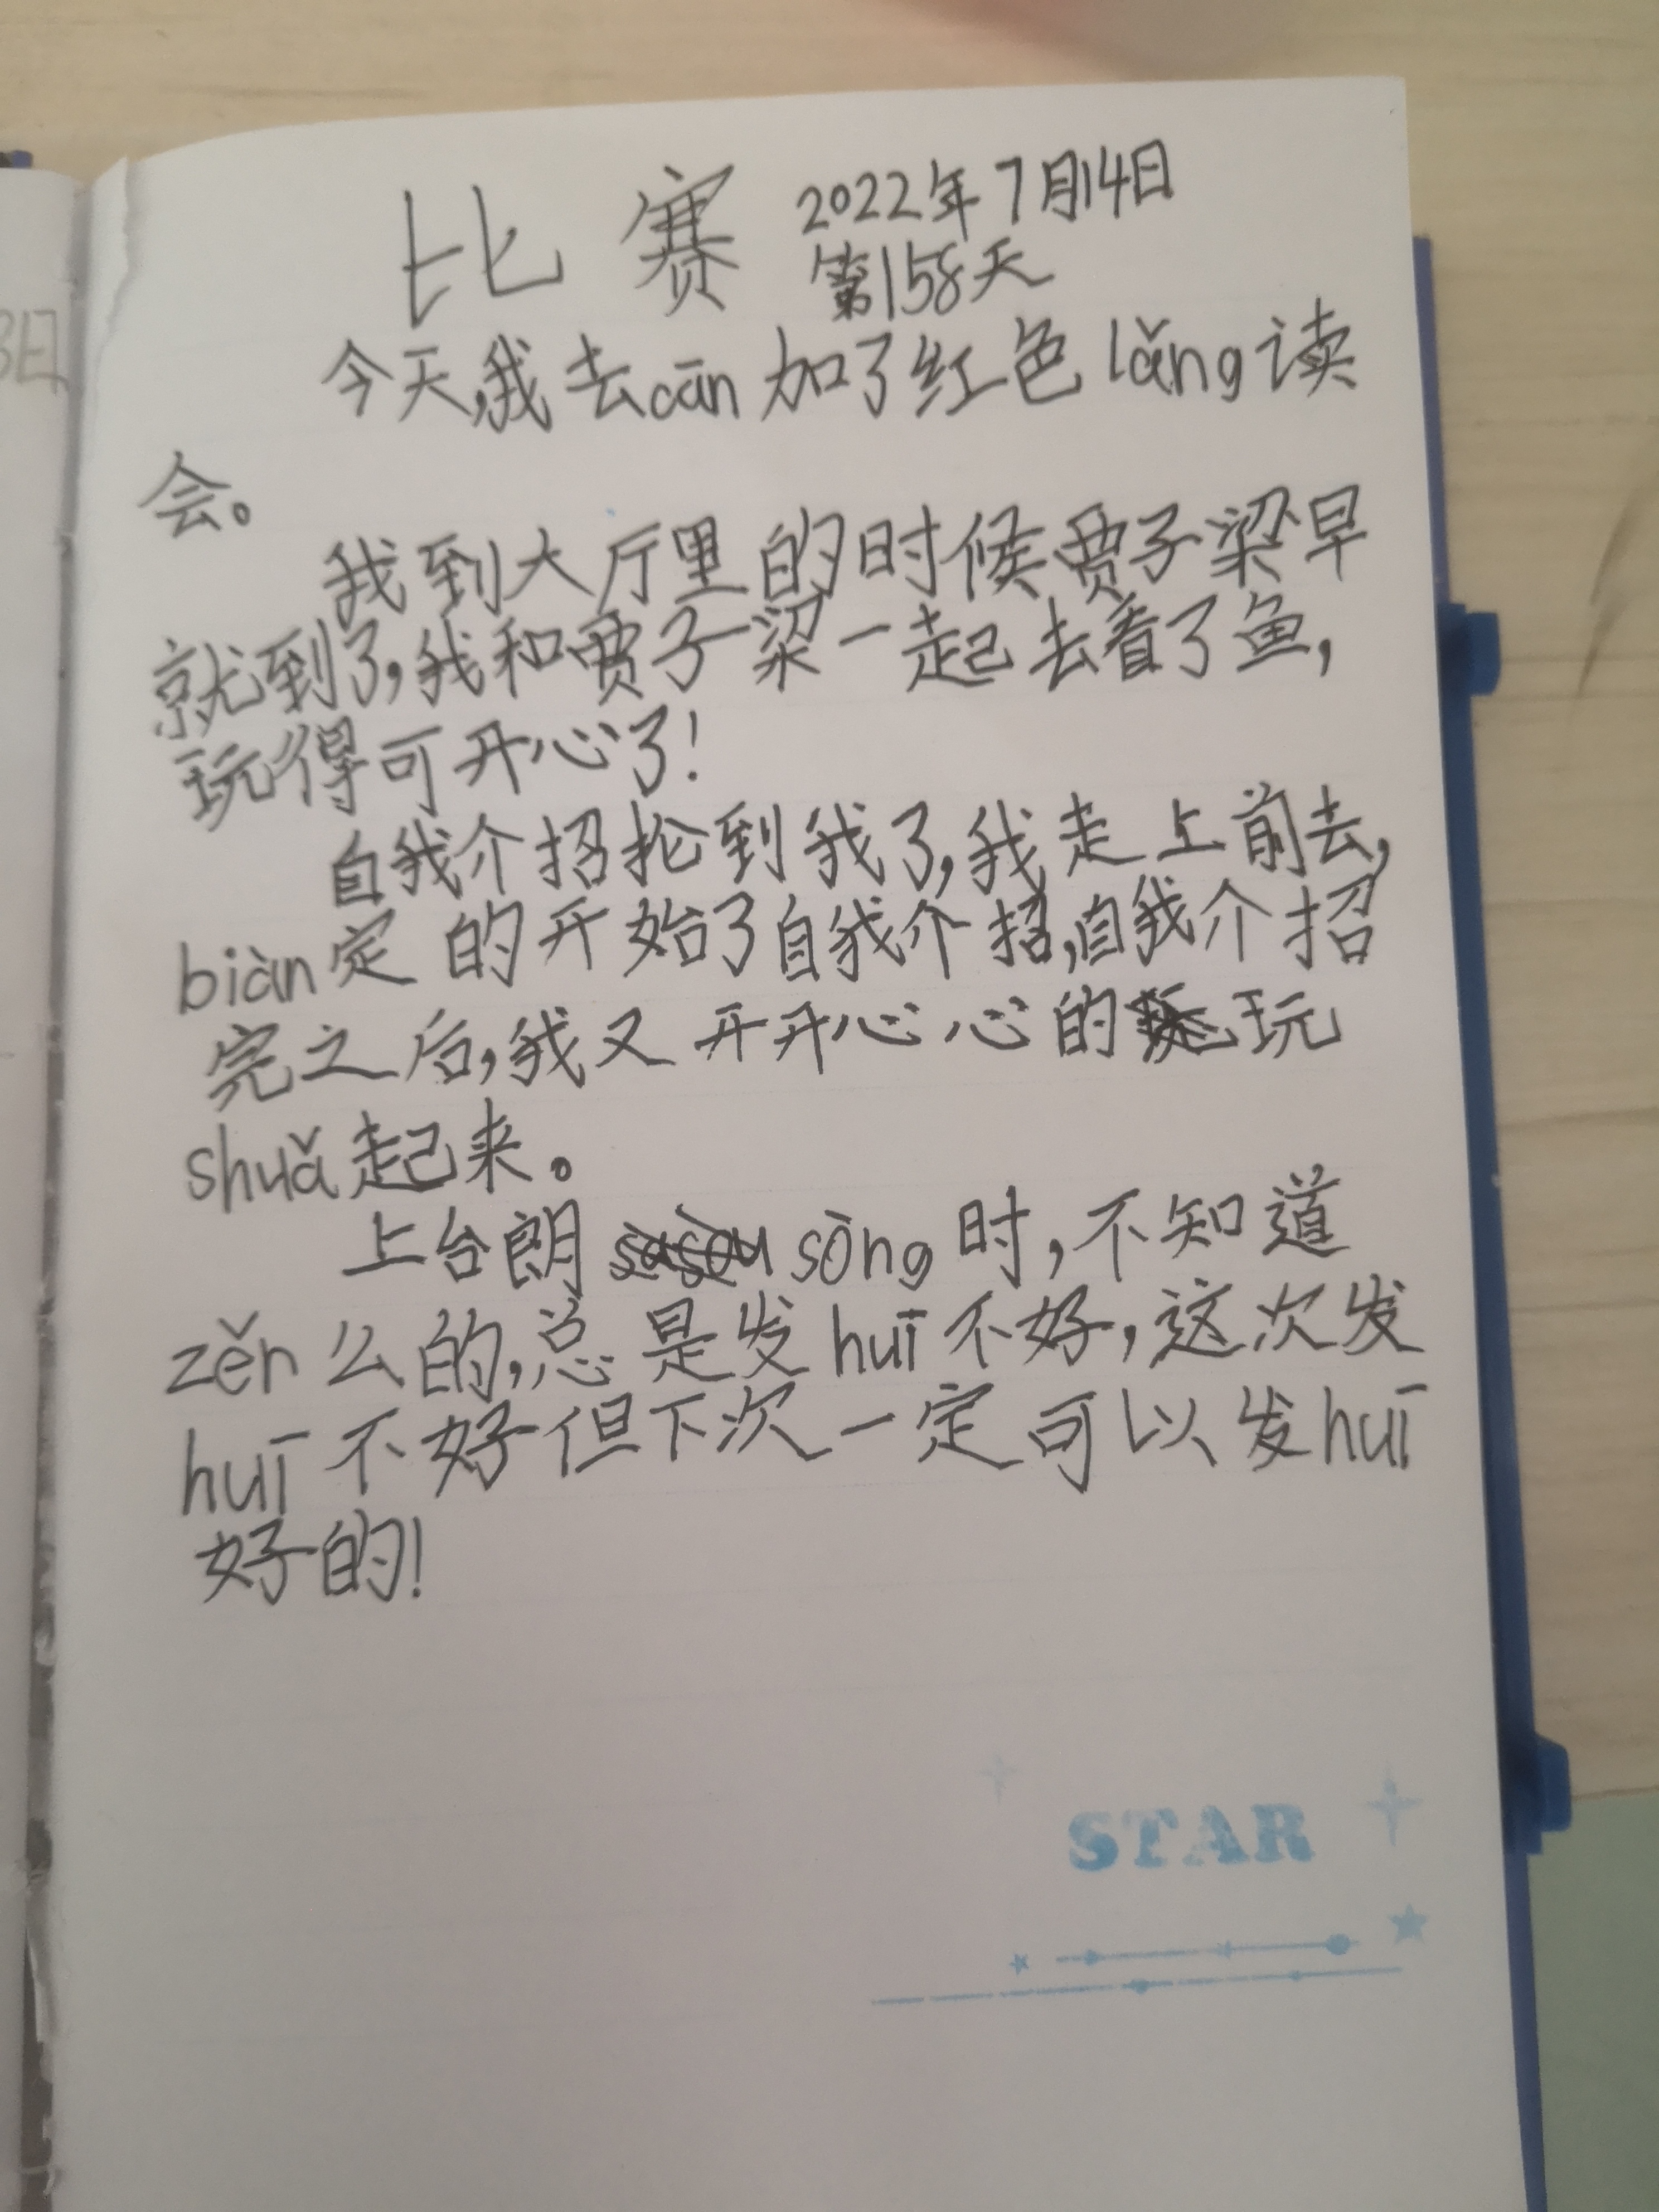 比赛 2022年7月14日
第158天
今天,我去cān加了红色lǎng读
会。
我到大厅里的时候贾子梁早
就到了,我和贾子梁一起去看了鱼,
玩得可开心了!
自我介招抡到我了,我走上前去,
biàn定的开始了自我介招,自我介招
完之后,我又开开心心的玩
shuǎ起来。
上台朗sòng时,不知道
zěn么的,总是发huī不好,这次发
huī不好但下次一定可以发huī
好的!
STAR